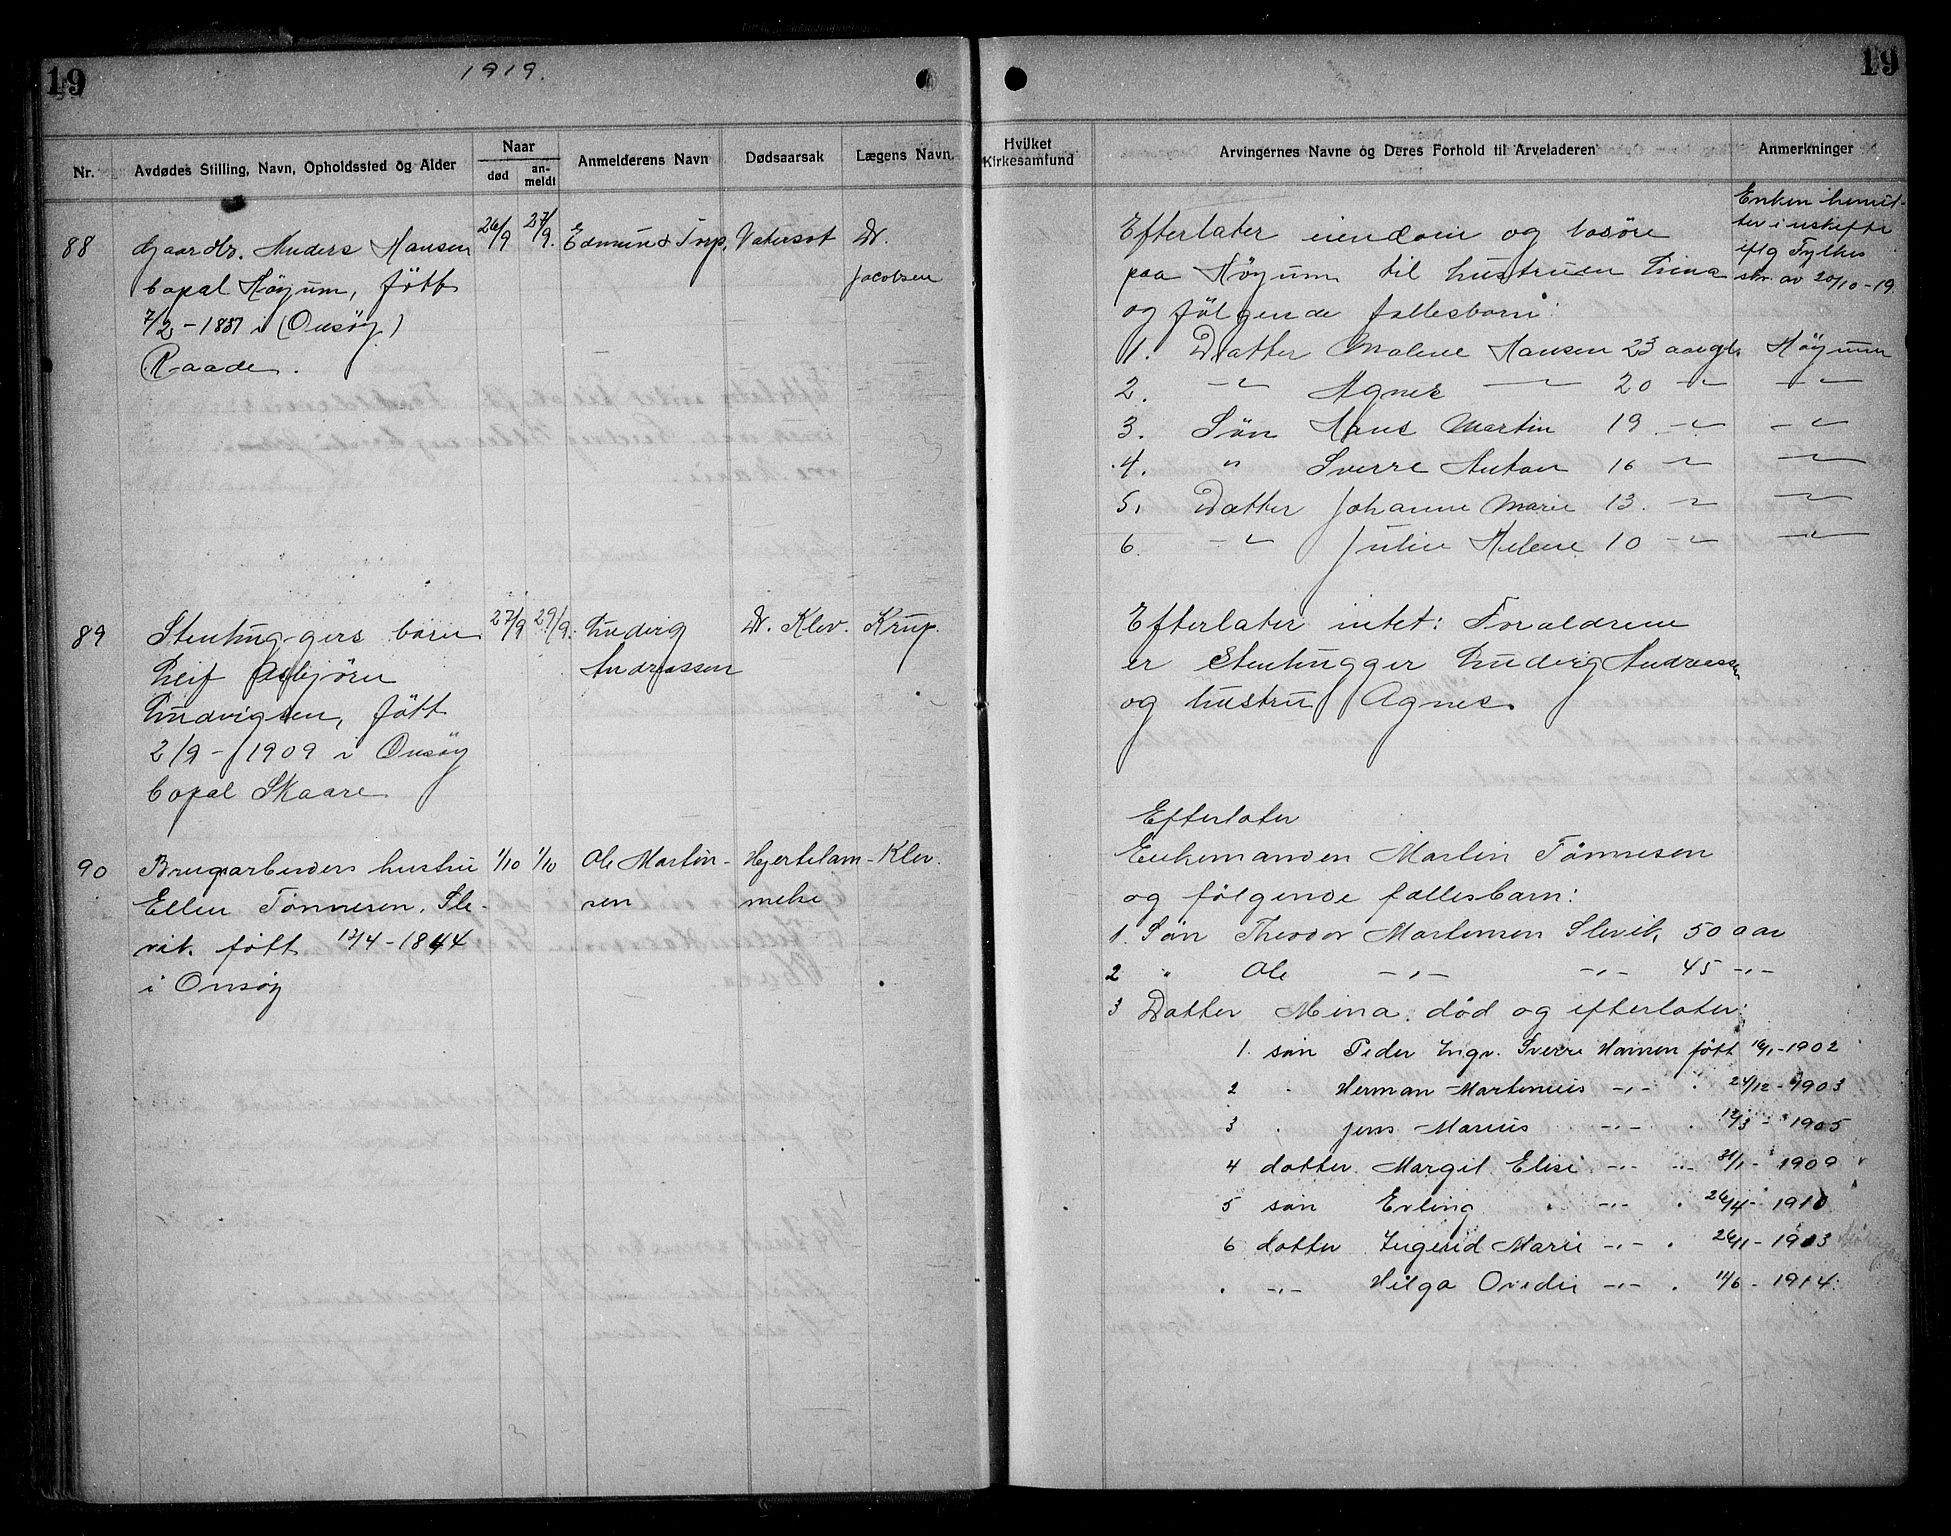 19
1919.
19
Nr.
Avdødes Stilling, Navn, Opholdssted og Alder
Naar
død
an-
meldt
Anmelderens Navn
Dødsaarsak
Lægens Navn.
Hvilket
Kirkesamfund
Arvingernes Navne og Deres Forhold til Arveladeren
Anmerkninger
88
Gaardbr. Anders Hansen
bopæl Höyum, född
7/2-1837 i (Onsöy)
Raade.
26/9
27/9.
Edmund Torp,
Vatersot
Dr.
Jacobsen
Efterlater eiendom og losöre
paa Höyum til hustruen Lina
og fölgende fællesbarn:
1. Datter Malene Hansen 23 aargl. Höyum
2. -"- Agnes -"- 20 -"- -"-
3. Sön Hans Martin 19 -"- -"-
4. " Sverre Anton 16 -"- -"-
5. Datter Johanne Marie 13. -"- -"-
6. -"- Julie Helene 10 -"- -"-
Enken hensit-
ter i uskifte
iflg Fylkes
skr. av 20/10-19.
89
Stenhuggers barn
Leif Asbjörn
Ludvigsen, född
2/9-1909 i Onsöy
bopæl Skaare
27/9
29/9.
Ludvig
Andreassen
Dr. Klev.
Krup.
Efterlater intet: Foraldrene
er Stenhugger Ludvig Andreassen
og hustru Agnes.
90
Brugsarbeiders hustru
Ellen Tönnesen, Sle-
vik. född 12/4-1844
i Onsöy
1/10
1/10
Ole Martin-
sen
Hjertelam-
melse
Klev.
Efterlater
Enkemanden Martin Tönnesen
og fölgende fællesbarn:
1. Sön Theodor Martinsen Slevik, 50 aar
2 " Ole -"- -"- 45 -"-
3 Datter Mina. död og efterlater:
1. sön Peder Ingv. Sverre Hansen född 16/1-1902
2 " Herman Martenius -"- " 24/12-1903
3 " Jens Marius -"- " 12/3-1905
4 datter Margit Elise -"- " 31/1-1909
5 sön Erling " -"- " 26/4-1910
6 datter Ingerid Marie -"- " 26/1-1913
" -"- Helga Ovedie -"- " 11/6-1914.